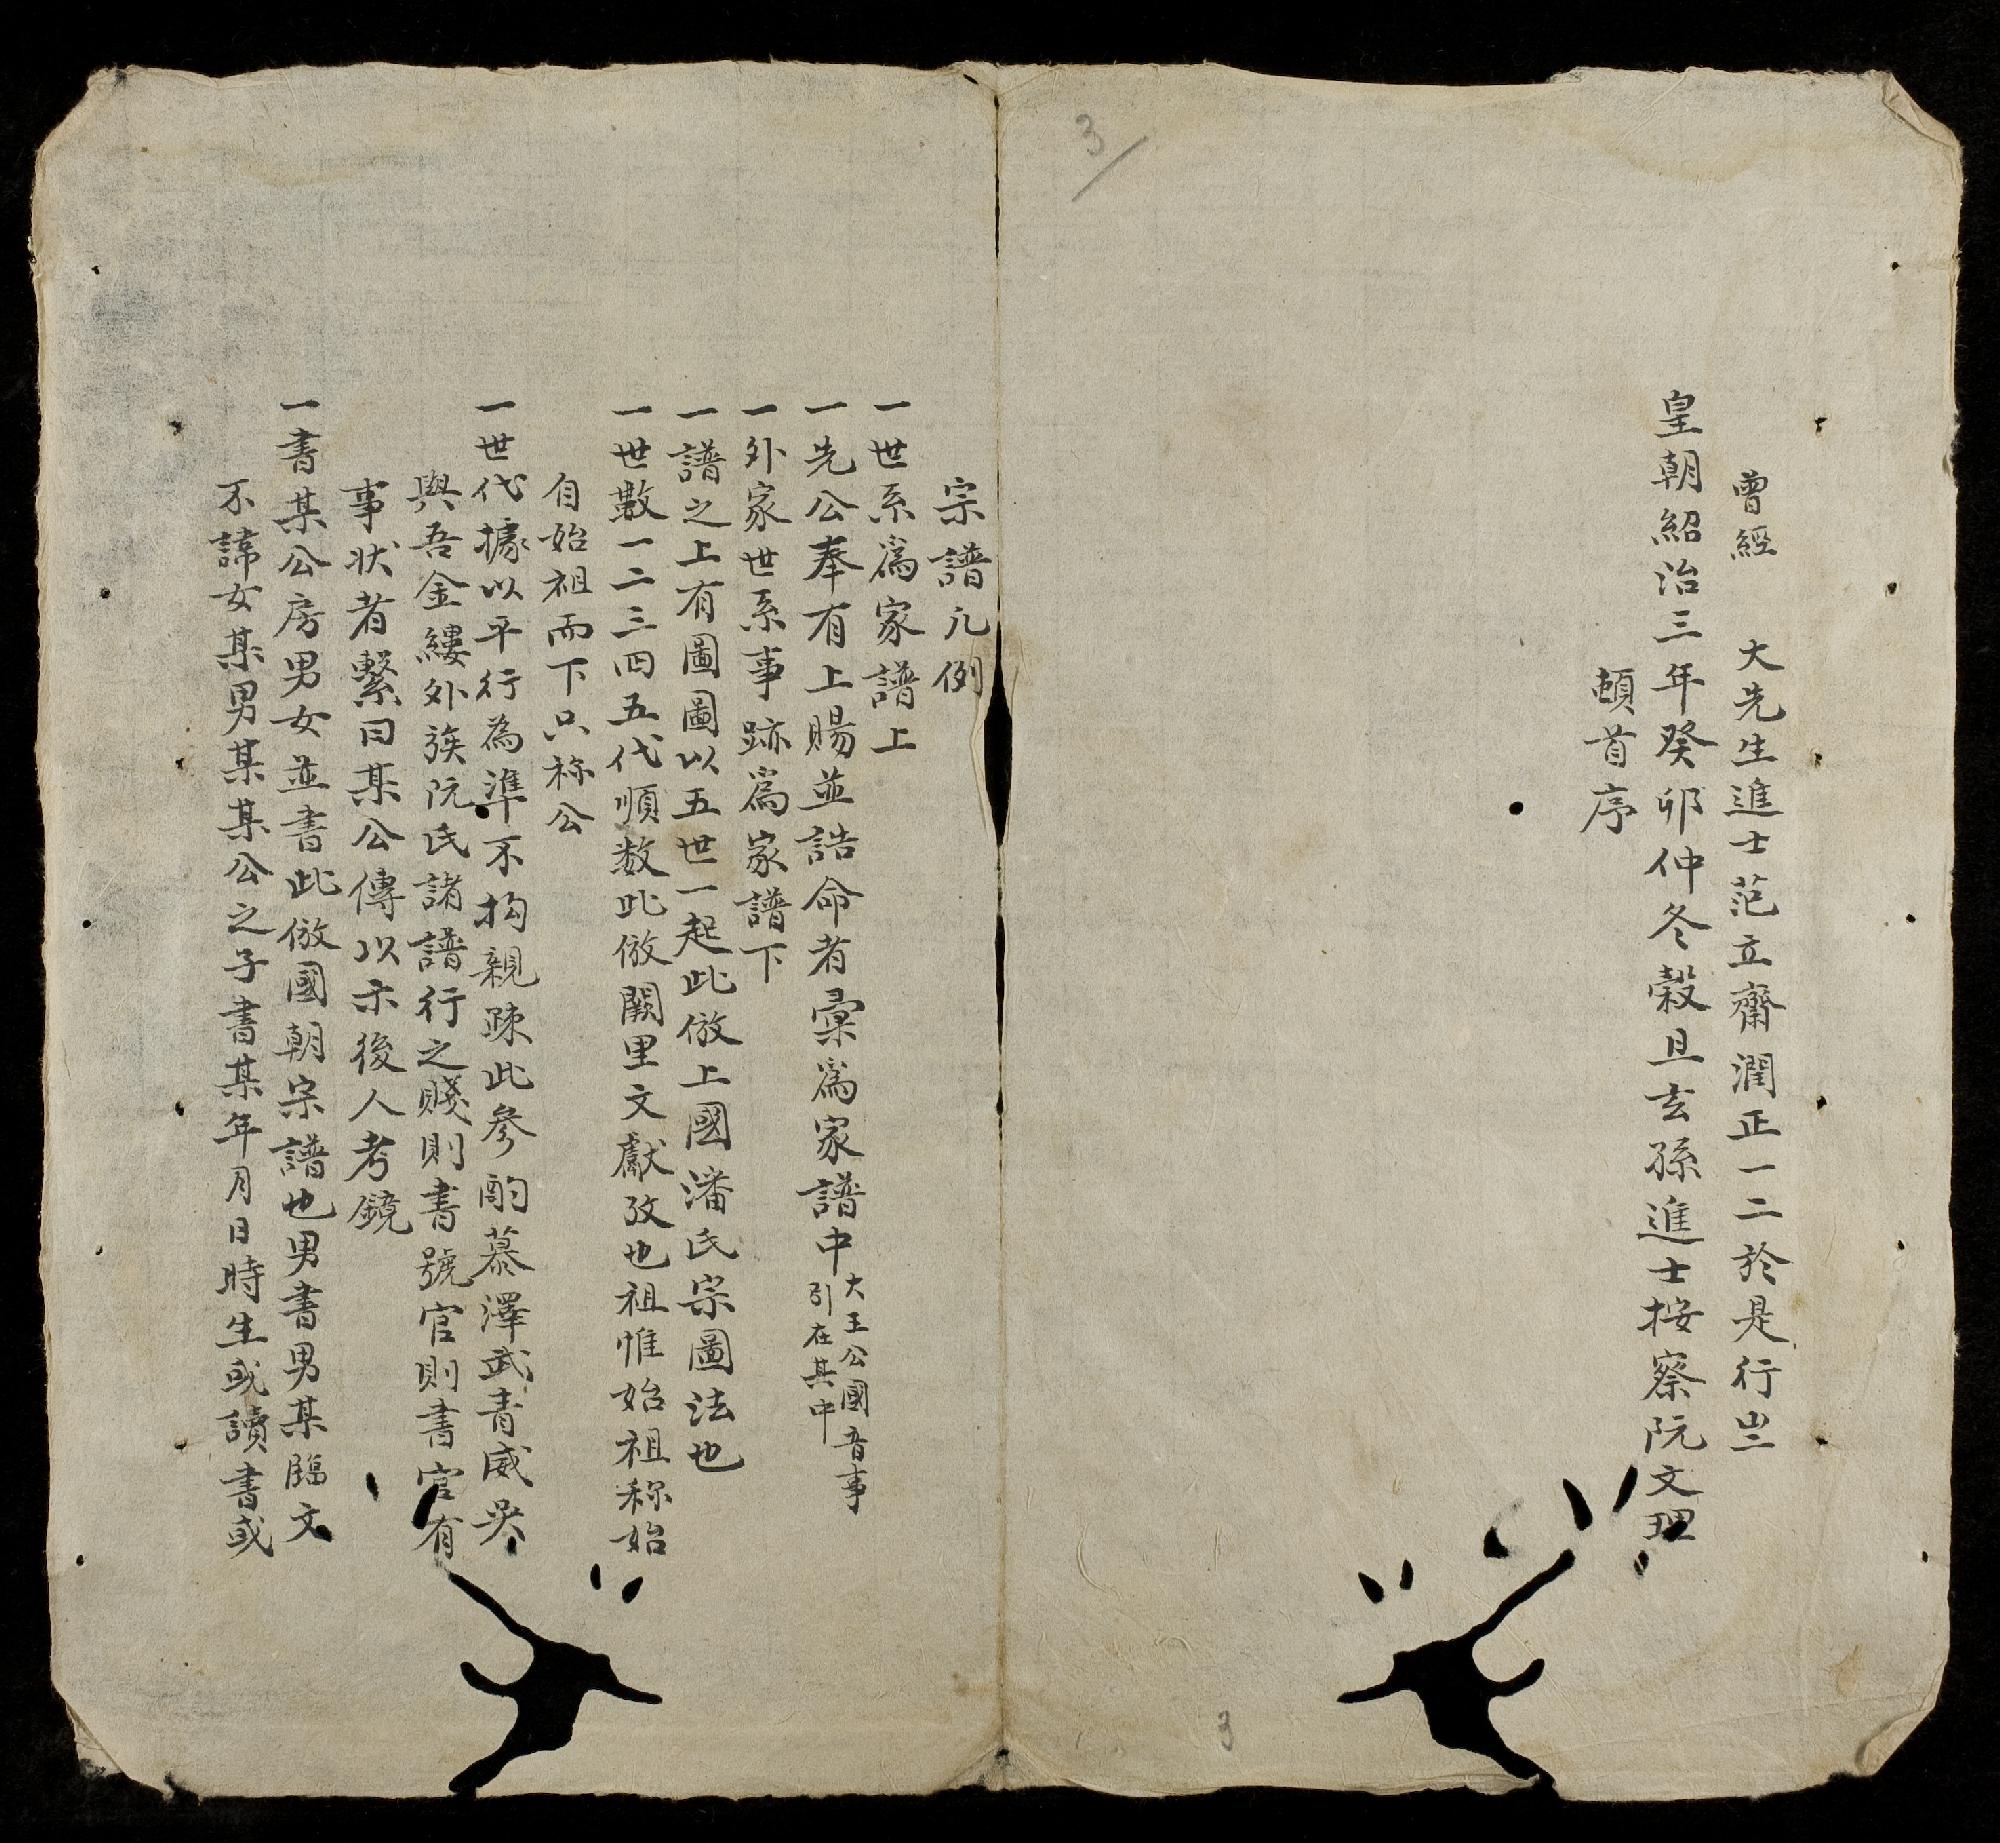 曾經　大先生進士范立齋潤正一二於是行岀
皇朝紹治三年癸卯仲冬穀旦玄孫進士按察阮文理
頓首序
3
3
宗譜凡例
一世系爲家譜上
一先公奉有上賜並誥命者彙爲家譜中大王公國音事引在其中
一外家世系事跡爲家譜下
一譜之上有圖圖以五世一起此倣上國潘氏宗圖法也
一世數一二三四五代順数此倣闕里文獻攷也祖惟始祖称始
自始祖而下只称公
一世代據以平行為準不拘親疎此參酌慕澤武青威吳
與吾金縷外族阮氏諸譜行之賤則書號官則書官有
事状者繫曰某公傳以示後人考鏡
一書某公房男女並書此倣國朝宗譜也男書男某臨文
不諱女某男某某公之子書某年月日時生或讀書或